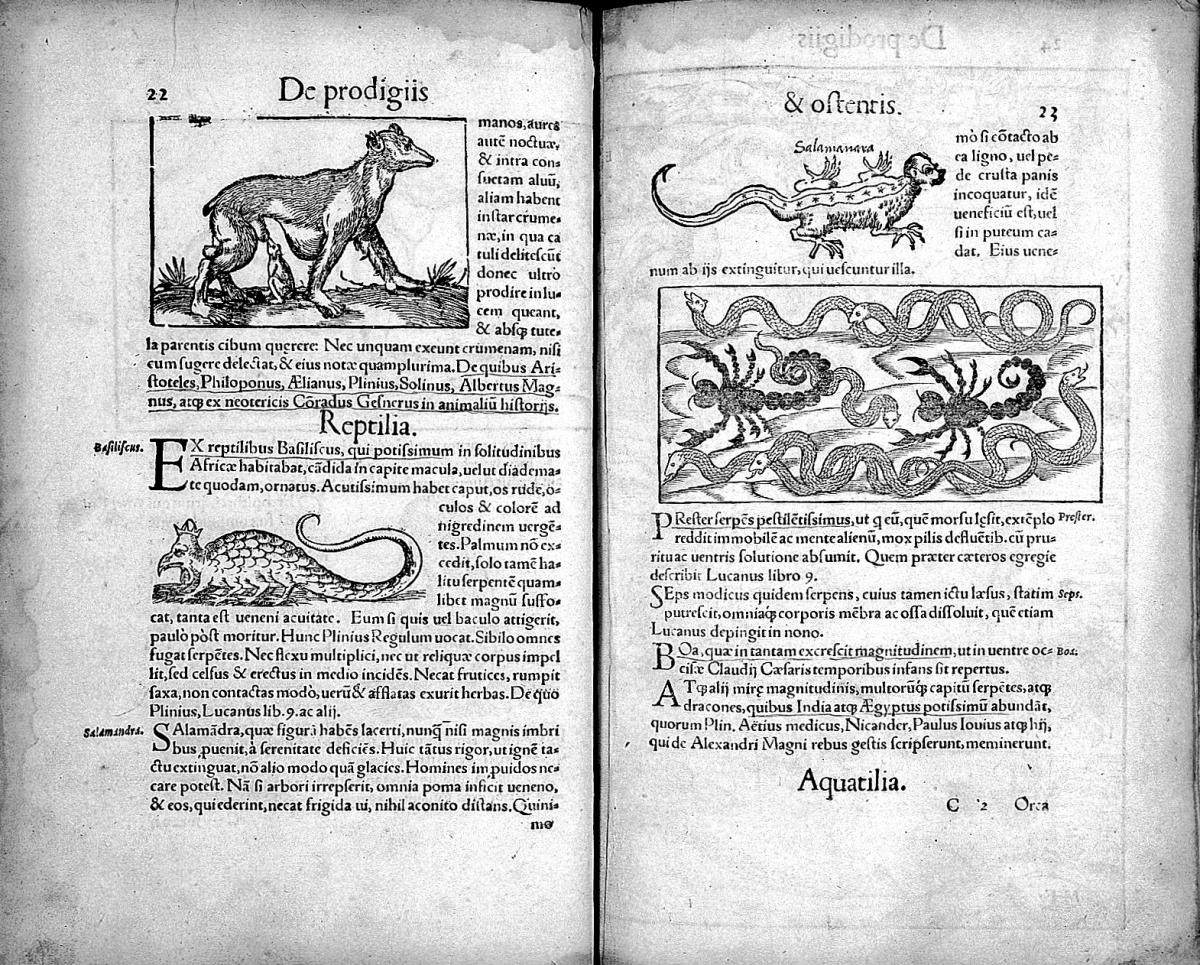 22 De prodigiis
manos, aures
autē noctuæ,
& intra con-
suetam aluū,
aliam habent
instar crume-
næ, in qua ca
tuli delitescūt
donec ultro
prodire in lu-
cem queant,
& absq; tute-
la parentis cibum querere: Nec unquam exeunt crumenam, nisi
cum sugere delectat, & eius notæ quamplurima. De quibus Ari-
stoteles, Philoponus, Ælianus, Plinius, Solinus, Albertus Mag-
nus, atq; ex neotericis Cōradus Gesnerus in animaliū historijs.
Reptilia.
Basiliscus.
EX reptilibus Basiliscus, qui potissimum in solitudinibus
Africæ habitabat, cādida in capite macula, uelut diadema-
te quodam, ornatus. Acutissimum habet caput, os rude, o-
culos & colorē ad
nigredinem uergē-
tes. Palmum nō ex-
cedit, solo tamē ha-
litu serpentē quam-
libet magnū suffo-
cat, tanta est ueneni acuitate. Eum si quis uel baculo attigerit,
paulò pòst moritur. Hunc Plinius Regulum uocat. Sibilo omnes
fugat serpētes. Nec flexu multiplici, nec ut reliquæ corpus impel
lit, sed celsus & erectus in medio incidēs. Necat frutices, rumpit
saxa, non contactas modò, uerū & afflatas exurit herbas. De quo
Plinius, Lucanus lib. 9. ac alij.
Salamandra.
SAlamādra, quæ figurā habēs lacerti, nunq̄ nisi magnis imbri
bus puenit, à serenitate deficiēs. Huic tātus rigor, ut ignē ta-
ctu extinguat, nō alio modo quā glacies. Homines improuidos ne-
care potest. Nā si arbori irrepserit, omnia poma inficit ueneno,
& eos, qui ederint, necat frigida ui, nihil aconito distans. Quini-
mo
& ostentis. 23
Salamanara
mò si cōtacto ab
ea ligno, uel pe-
de crusta panis
incoquatur, idē
ueneficiū est, uel
si in puteum ca-
dat. Eius uene-
num ab ijs extinguitur, qui uescuntur illa.
PRester serpēs pestilētissimus, ut q eū, quē morsu lęsit, extēplo
Prester.
reddit immobilē ac mente alienū, mox pilis defluētib. cū pru-
ritu ac uentris solutione absumit. Quem præter cæteros egregie
describit Lucanus libro 9.
SEps modicus quidem serpens, cuius tamen ictu læsus, statim
Seps.
putrescit, omniaq́; corporis mēbra ac ossa dissoluit, quē etiam
Lucanus depingit in nono.
BOa, quæ in tantam excrescit magnitudinem, ut in uentre oc-
Boa.
cisæ Claudij Cæsaris temporibus infans sit repertus.
ATq; alij mirę magnitudinis, multorūq́; capitū serpētes, atq;
dracones, quibus India atq; Ægyptus potissimū abundāt,
quorum Plin. Aëtius medicus, Nicander, Paulus Iouius atq; hij,
qui de Alexandri Magni rebus gestis scripserunt, meminerunt.
Aquatilia.
C 2 Orca